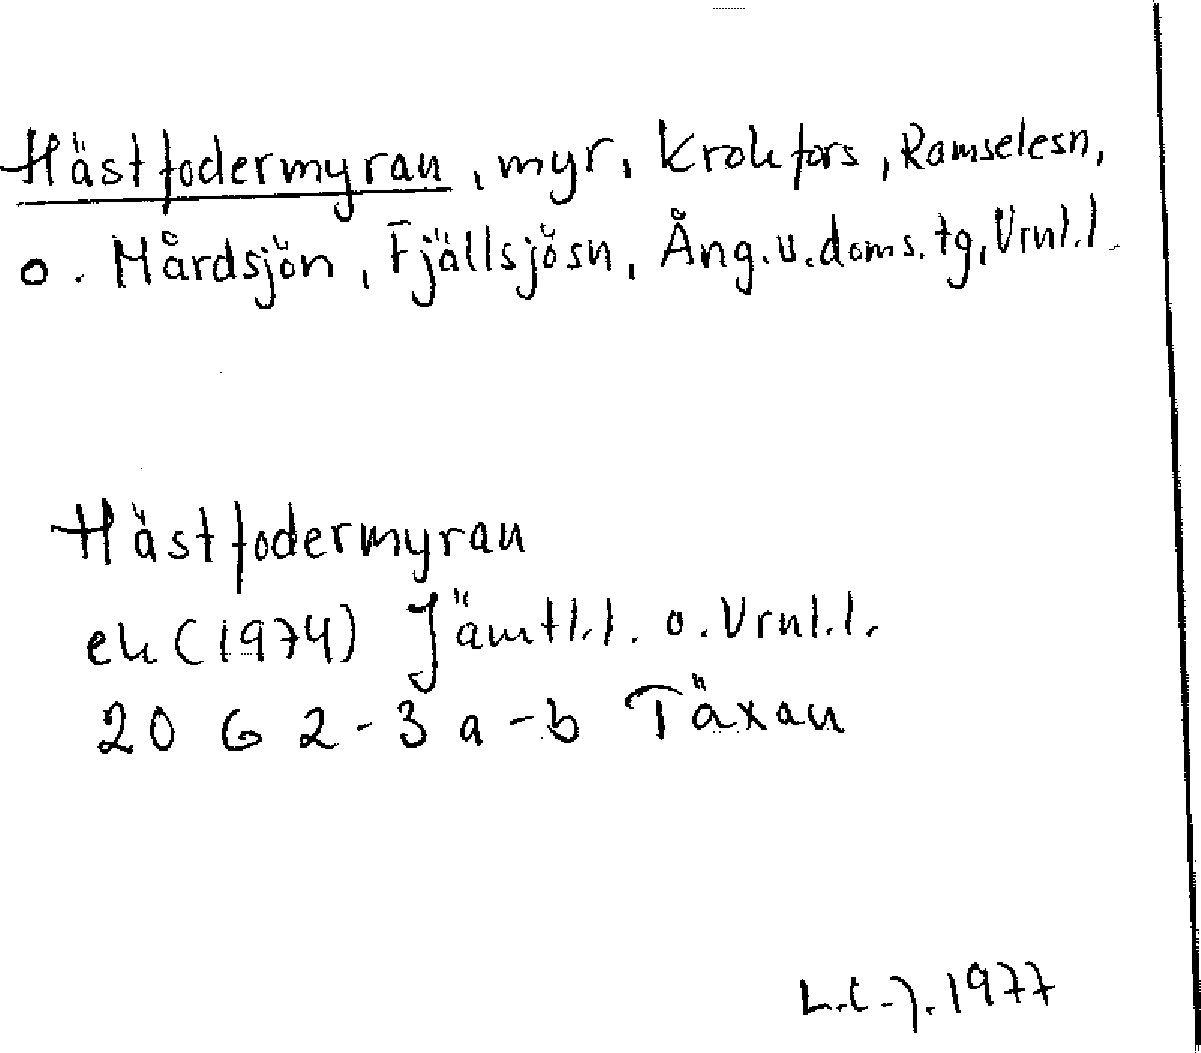 Hästfodermyran, myr, Krokfors, Ramselesn,
o. Mårdsjön, Fjällsjösn, Ång.v.doms.tg, Vrnl.l.
Hästfodermyran
ek (1974) Jämtl.l. o. Vrnl.l.
20 G 2-3 a-b Täxan
1977